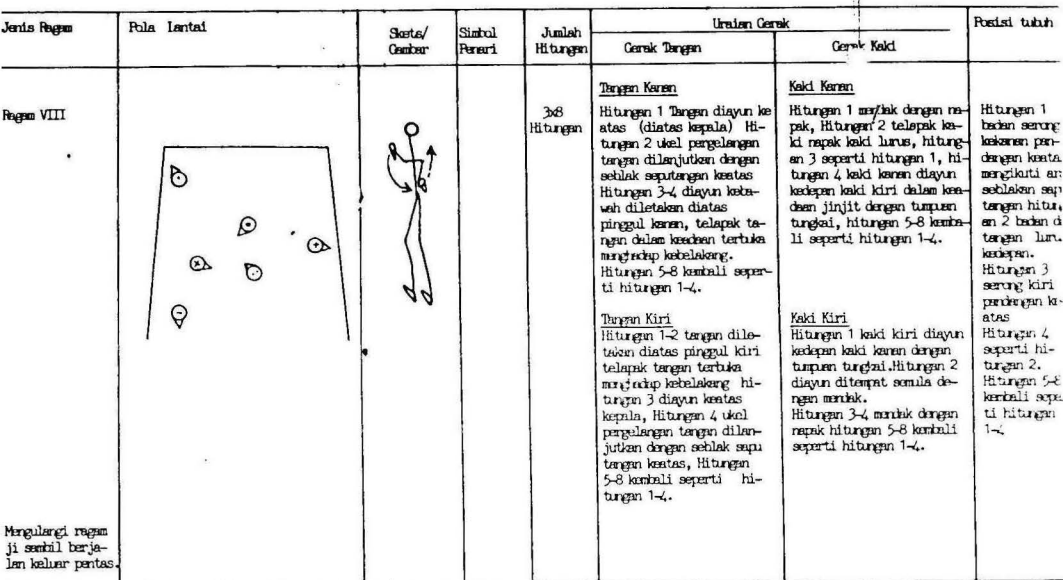 Jenis Ragam
Pola Lantai
Sketa/
Gambar
Simbol
Penari
Jumlah
Hitungan
Uraian Gerak
Gerak Tangan
Gerak Kaki
Posisi tubuh
Ragam VIII
3x8
Hitungan
Tangan Kanan
Hitungan 1 Tangan diayun ke
atas (diatas kepala) Hi-
tungan 2 ukel pergelangan
tangan dilanjutkan dengan
seblak seputangan keatas
Hitungan 3-4 diayun keba-
wah diletakan diatas
pinggul kanan, telapak ta-
ngan dalam keadaan tertuka
menghadap kebelakang.
Hitungan 5-8 kembali seper-
ti hitungan 1-4.
Tangan Kiri
Hitungan 1-2 tangan dile-
takan diatas pinggul kiri
telapak tangan tertuka
menghadap kebelakang hi-
tungan 3 diayun keatas
kepala, Hitungan 4 ukel
pergelangan tangan dilan-
jutkan dengan seblak sapu
tangan keatas, Hitungan
5-8 kembali seperti hi-
tungan 1-4.
Kaki Kanan
Hitungan 1 mendak dengan na-
pak, Hitungan 2 telapak ka-
ki napak kaki lurus, hitung-
an 3 seperti hitungan 1, hi-
tungan 4 kaki kanan diayun
kedepan kaki kiri dalam kea-
daan jinjit dengan tumpuan
tungkai, hitungan 5-8 kemba-
li seperti hitungan 1-4.
Kaki Kiri
Hitungan 1 kaki kiri diayun
kedepan kaki kanan dengan
tumpuan tungkai.Hitungan 2
diayun ditempat semula de-
ngan mendak.
Hitungan 3-4 mendak dengan
napak hitungan 5-8 kembali
seperti hitungan 1-4.
Hitungan 1
badan serong
kekanan pan-
dangan keata
mengikuti
seblakan sap
tangan hitun
an 2 badan d
tangan
kedepan.
Hitungan 3
serong kiri
pandangan ke-
atas
Hitungan 4
seperti hi-
tungan 2.
Hitungan 5-8
kembali sepe
ti hitungan
1-4
Mengulangi ragam
ji sambil berja-
lan keluar pentas.